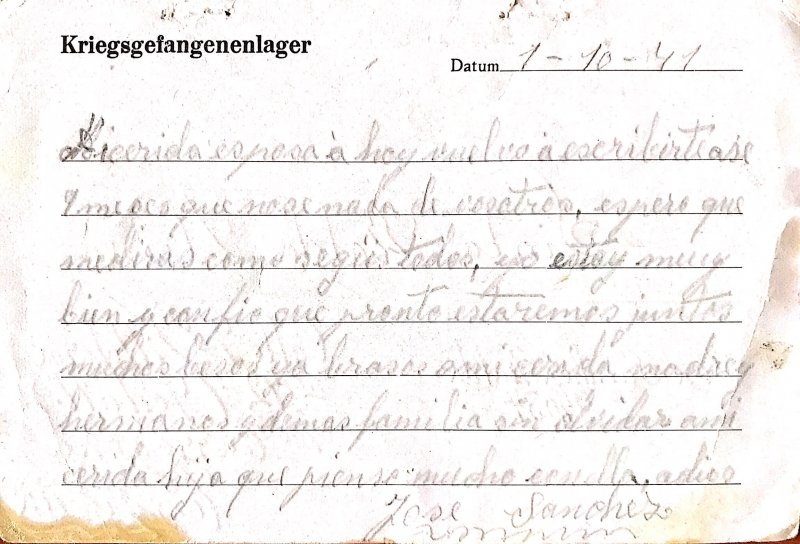 Kriegsgefangenenlager
Datum 1-10-41
Mi cerida esposa à hoy vuelvo a escribirte ase
9 meses que no se nada de vosotros, espero que
mediras como seguis todos, yo estoy muy
bien y confio que pronto estaremos juntos
muchos besos y a brasos a mi cerida madre y
hermanos y demas familia sin olvidar a mi
cerida hija que pienso mucho con ella, adios
Jose Sanchez